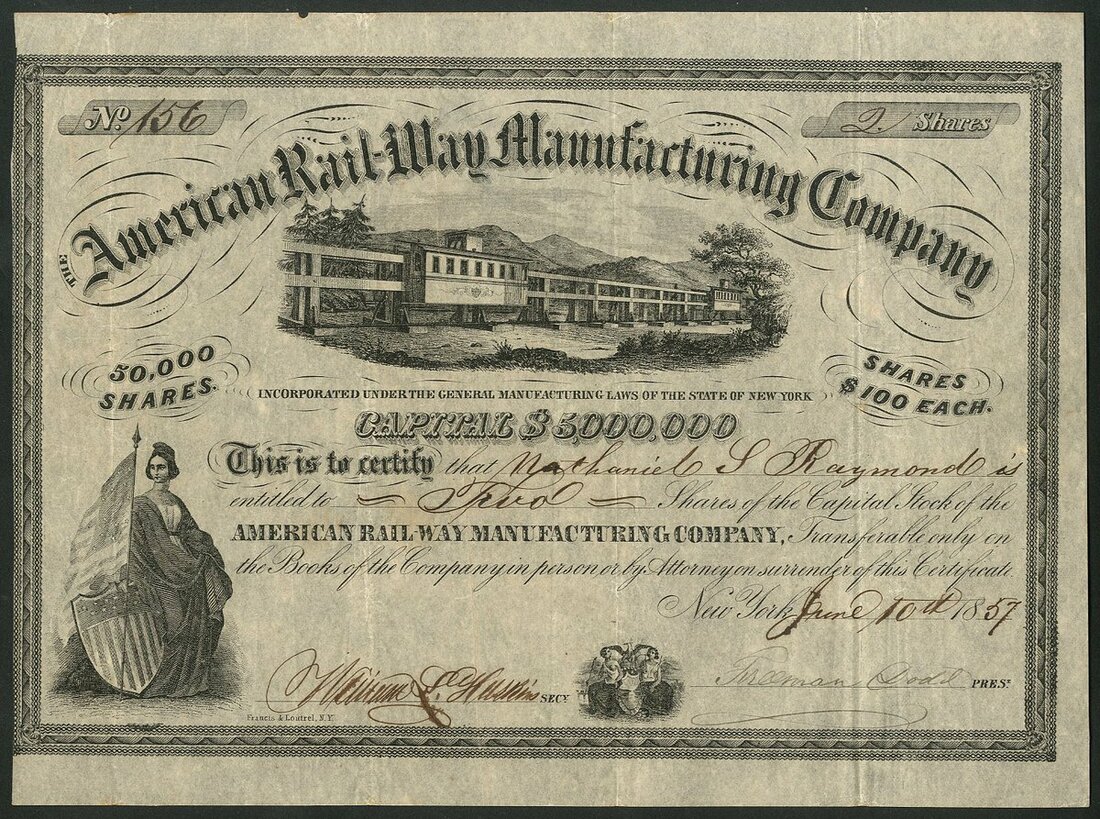 No. 156
2 Shares
THE American Rail-Way Manufacturing Company
50,000 SHARES.
SHARES $100 EACH.
INCORPORATED UNDER THE GENERAL MANUFACTURING LAWS OF THE STATE OF NEW YORK
CAPITAL $5,000,000
This is to certify that Nathaniel S Raymond is
entitled to Two Shares of the Capital Stock of the
AMERICAN RAIL-WAY MANUFACTURING COMPANY, Transferable only on
the Books of the Company in person or by Attorney on surrender of this Certificate.
New York June 10th 1857
William SECY.
Freeman Dodd PREST.
Francis & Loutrel, N.Y.